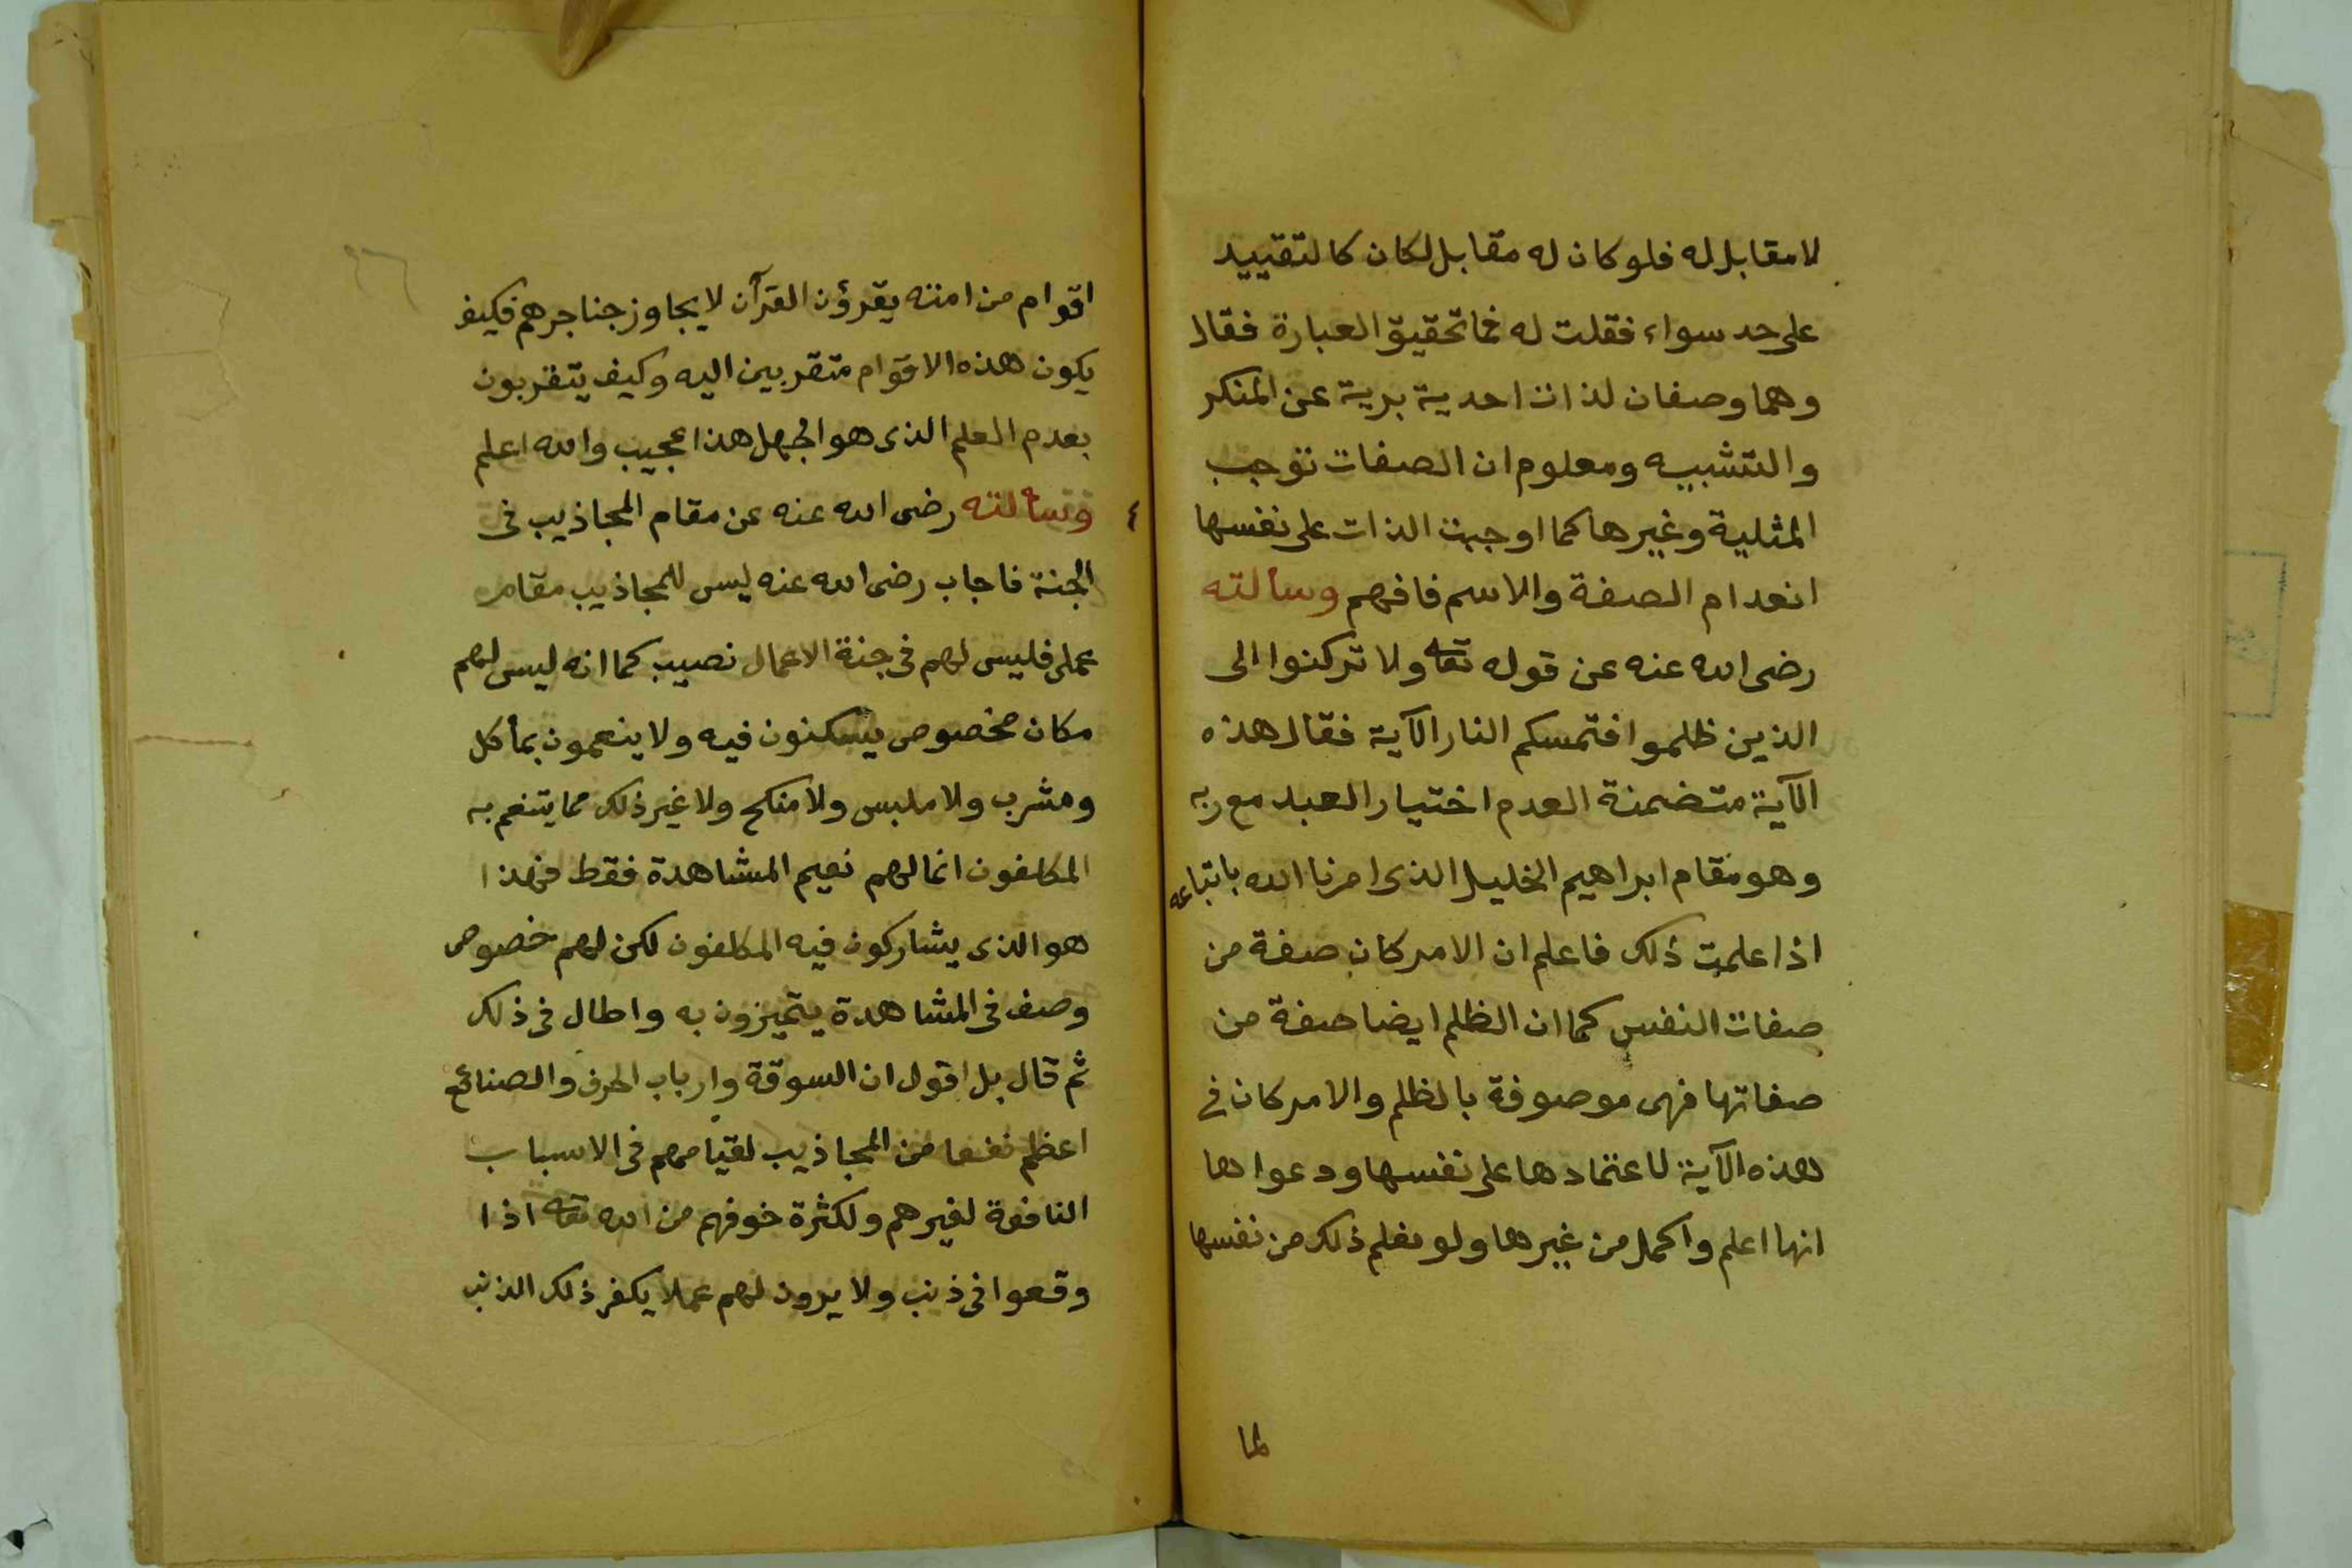 لا مقابل له فلو كان له مقابل لكان كالتقييد
على حد سواء فقلت له فما تحقيق العبارة فقال
وهما وصفان لذات احدية برية عن المنكر
والتشبيه ومعلوم ان الصفات توجب
المثلية وغيرها كما اوجبت الذات على نفسها
انعدام الصفة والاسم فافهم وسألته
رضى الله عنه عن قوله تعا ولا تركنوا الى
الذين ظلموا فتمسكم النار الآية فقال هذه
الآية متضمنة العدم اختيار العبد مع ربه
وهو مقام ابراهيم الخليل الذى امرنا الله باتباعه
اذا علمت ذلك فاعلم ان الامر كان صفة من
صفات النفس كما ان الظلم ايضا صفة من
صفاتها فهى موصوفة بالظلم والامر كان فى
هذه الآية لاعتمادها على نفسها ودعواها
انها اعلم واكمل من غيرها ولو نعلم ذلك من نفسها
لما
٩٦
اقوام من امته يقرؤن القرآن لا يجاوز حناجرهم فكيف
يكون هذه الاقوام متقربين اليه وكيف يتقربون
بعدم العلم الذى هو الجهل هذا عجيب والله اعلم
وسألته رضى الله عنه عن مقام المجاذيب فى
الجنة فاجاب رضى الله عنه ليس للمجاذيب مقام
عملى فليس لهم فى جنة الاعمال نصيب كما انه ليس لهم
مكان مخصوص يسكنون فيه ولا ينعمون بمأكل
ومشرب ولا ملبس ولا منكح ولا غير ذلك مما يتنعم به
المكلفون انما لهم نعيم المشاهدة فقط فهذا
هو الذى يشاركون فيه المكلفون لكن لهم خصوص
وصف فى المشاهدة يتميزون به واطال فى ذلك
ثم قال بل اقول ان السوقة وارباب الحرف والصنائع
اعظم نفعا من المجاذيب لقيامهم فى الاسباب
النافعة لغيرهم ولكثرة خوفهم من الله تعا اذا
وقعوا فى ذنب ولا يرون لهم عملا يكفر ذلك الذنب